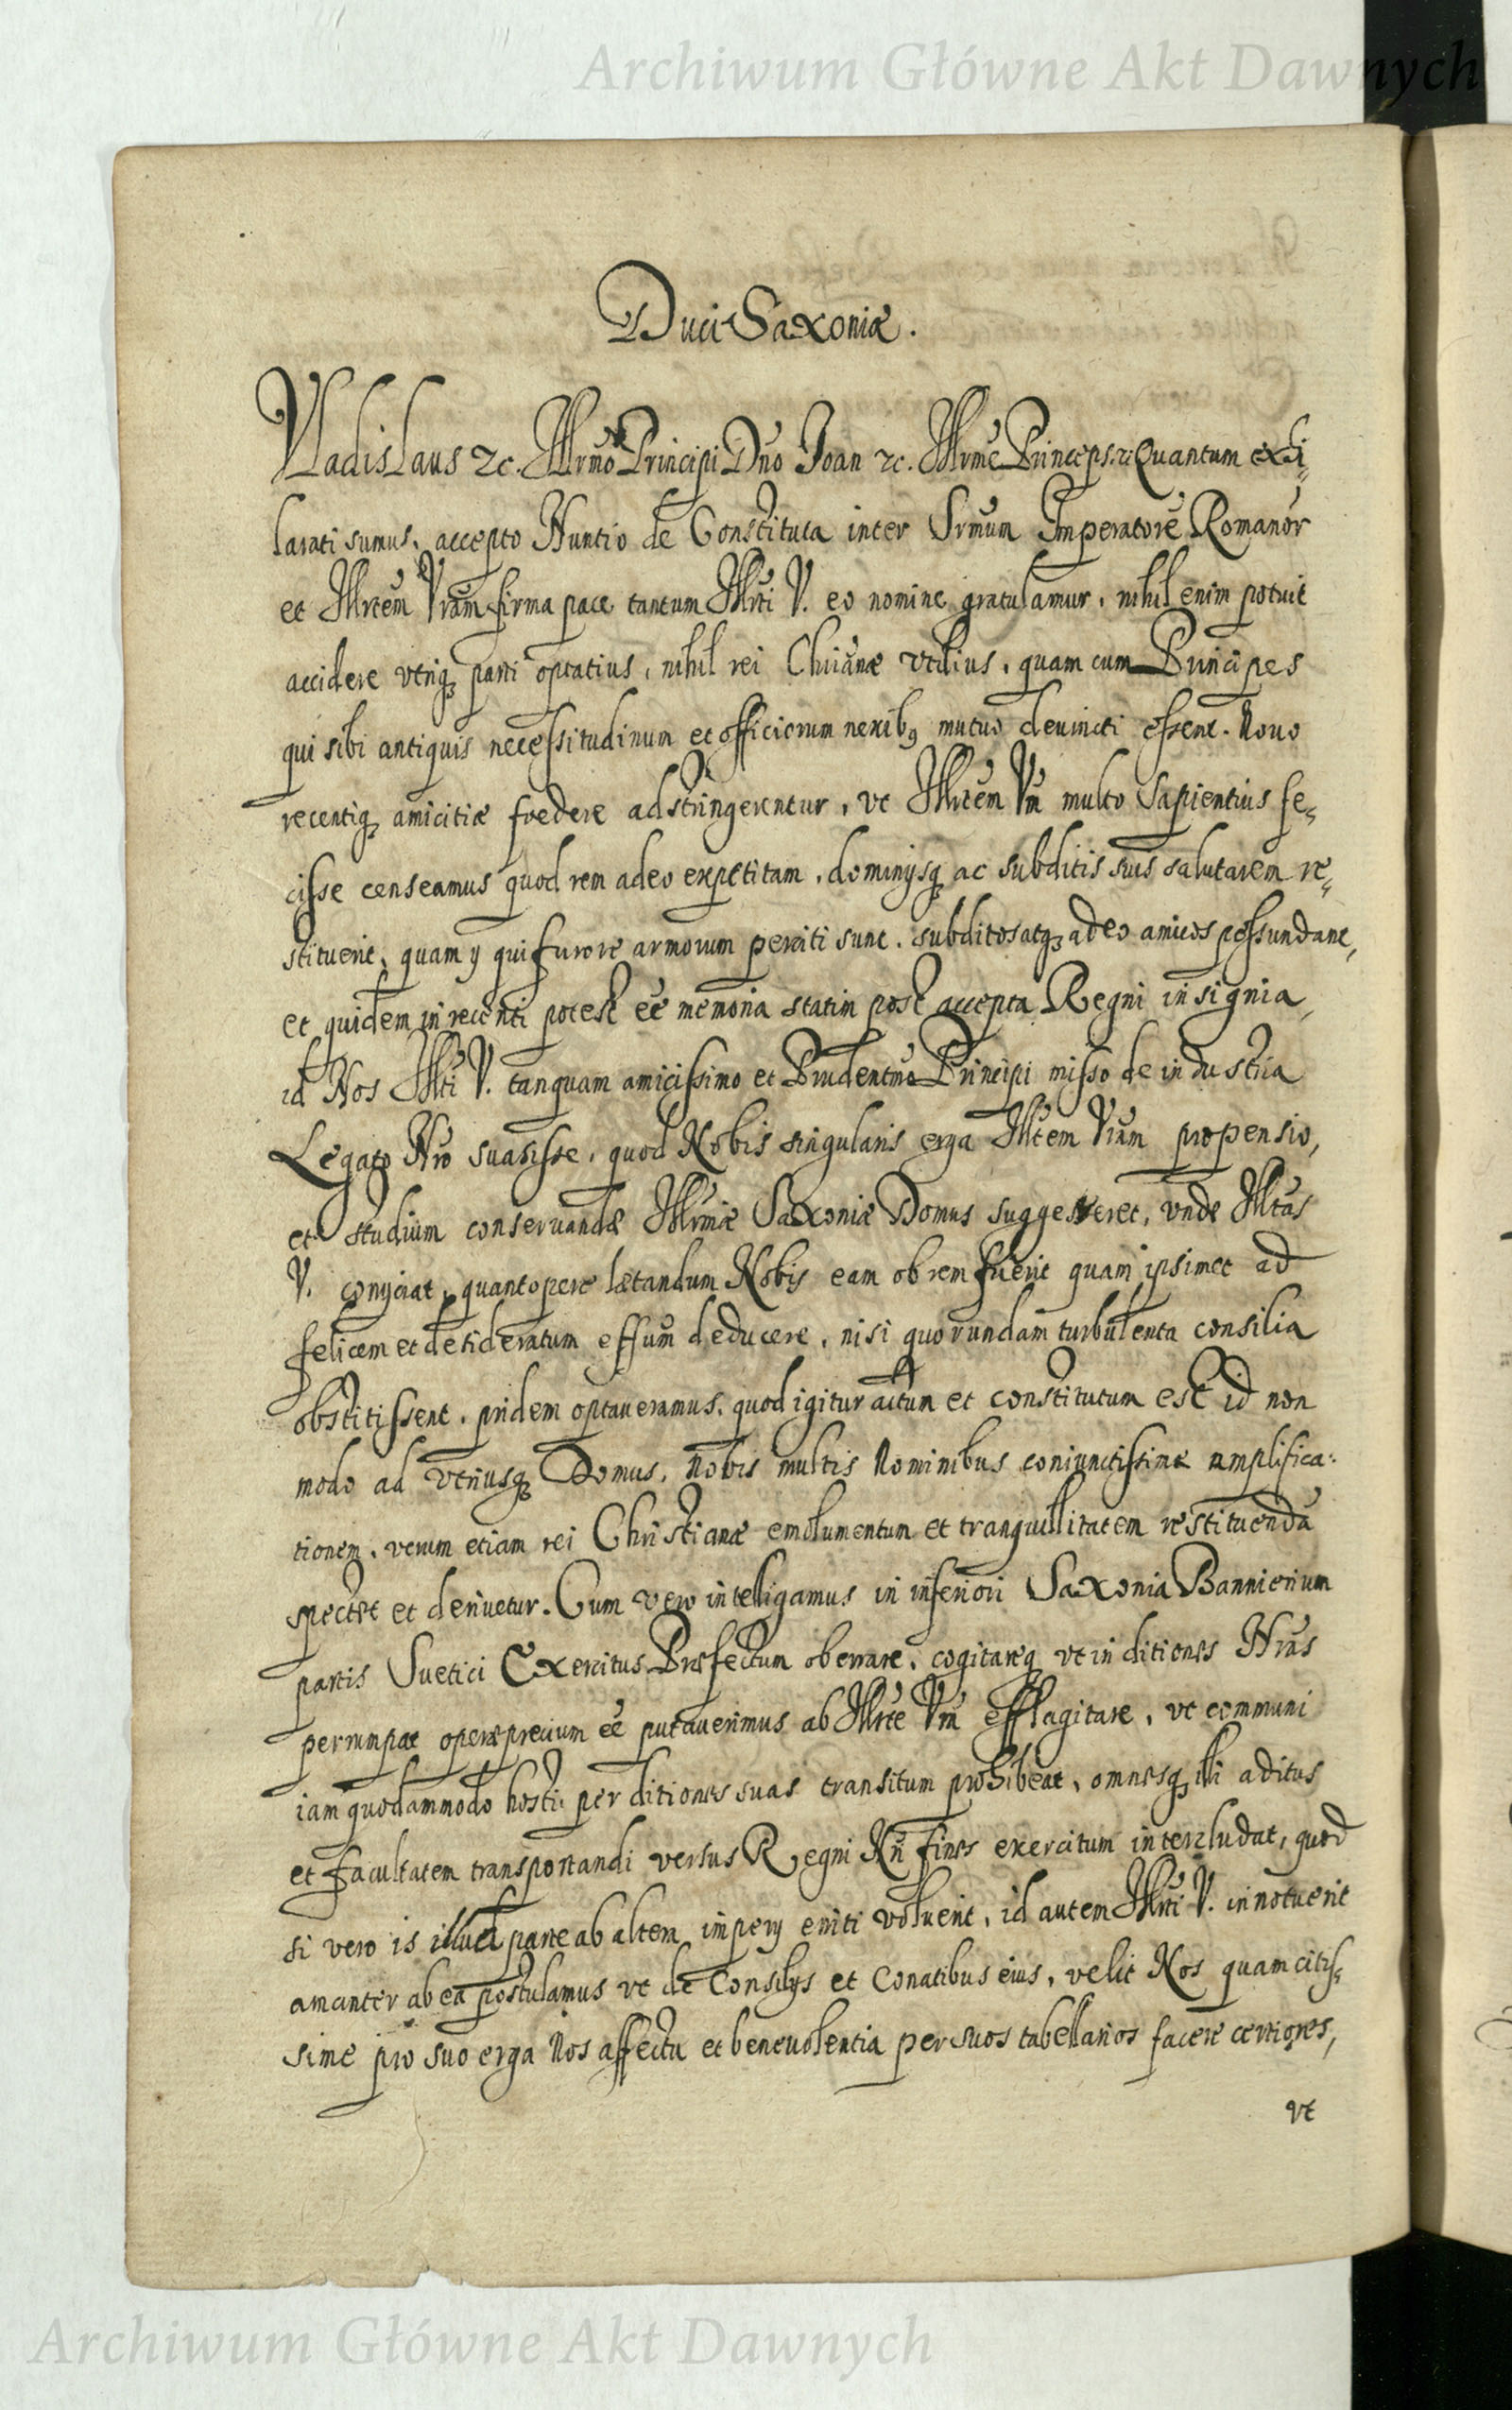 Archiwum Główne Akt Dawnych
Duci Saxoniæ.
Vladislaus &c. Illrmo Principi Dño Joan &c. Illrme Princeps &c. Quantum exhi-
larati sumus, accepto Nuntio de Constituta inter Srmum Imperatorē Romanor
et Illrtem Vrām firma pace tantum Illrti V. eo nomine gratulamur, nihil enim potuit
accidere vtriq; parti optatius, nihil rei Chrianæ vtilius, quam cum Principes
qui sibi antiquis necessitudinum et officiorum nexib9 mutuo deuincti essent. Nouo
recentiq; amicitiæ foedere adstringerentur, vt Illrtem Vm multo Sapientius fe-
cisse censeamus quod rem adeo expetitam, dominijsq; ac subditis suis salutarem re-
stituerit, quam ij qui furore armorum perciti sunt, subditos atq; adeo amicos pessundant,
et quidem in recenti potest eē memoria statim post accepta Regni insignia,
id Nos Illti V. tanquam amicissimo et Prudentmo Principi misso de industria
Legato Nro suasisse, quod Nobis singularis erga Illtem Vram propensio,
et studium conseruandæ Illrmæ Saxoniæ Domus suggereret, vnde Illtas
V. conijciat, quantopere lætandum Nobis eam ob rem fuerit quam ipsimet ad
felicem et desideratum effūm deducere, nisi quorundam turbulenta consilia
obstitissent, pridem optaueramus, quod igitur actum et constitutum est id non
modo ad vtriusq; Domus, Nobis multis Nominibus coniunctissimæ amplifica-
tionem, verum etiam rei Christianæ emolumentum et tranquillitatem restituendā
spectet et deriuetur. Cum vero intelligamus in inferiori Saxonia Bannierium
partis Suetici Exercitus Præfectum oberrare, cogitareq; vt in ditiones Nrās
perrumpat operæprecium eē putauerimus ab Illrte Vrā efflagitare, vt communi
iam quodammodo hosti per ditiones suas transitum prohibeat, omnesq; illi aditus
et facultatem transportandi versus Regni Nri fines exercitum intercludat, quod
si vero is illud parte ab altera imperij eniti voluerit, id autem Illrti V. innotuerit
amanter ab eā postulamus vt de Consilijs et Conatibus eius, velit Nos quam citis-
sime pro suo erga Nos affectu et beneuolentia per suos tabellarios facere certiores,
vt
Archiwum Główne Akt Dawnych